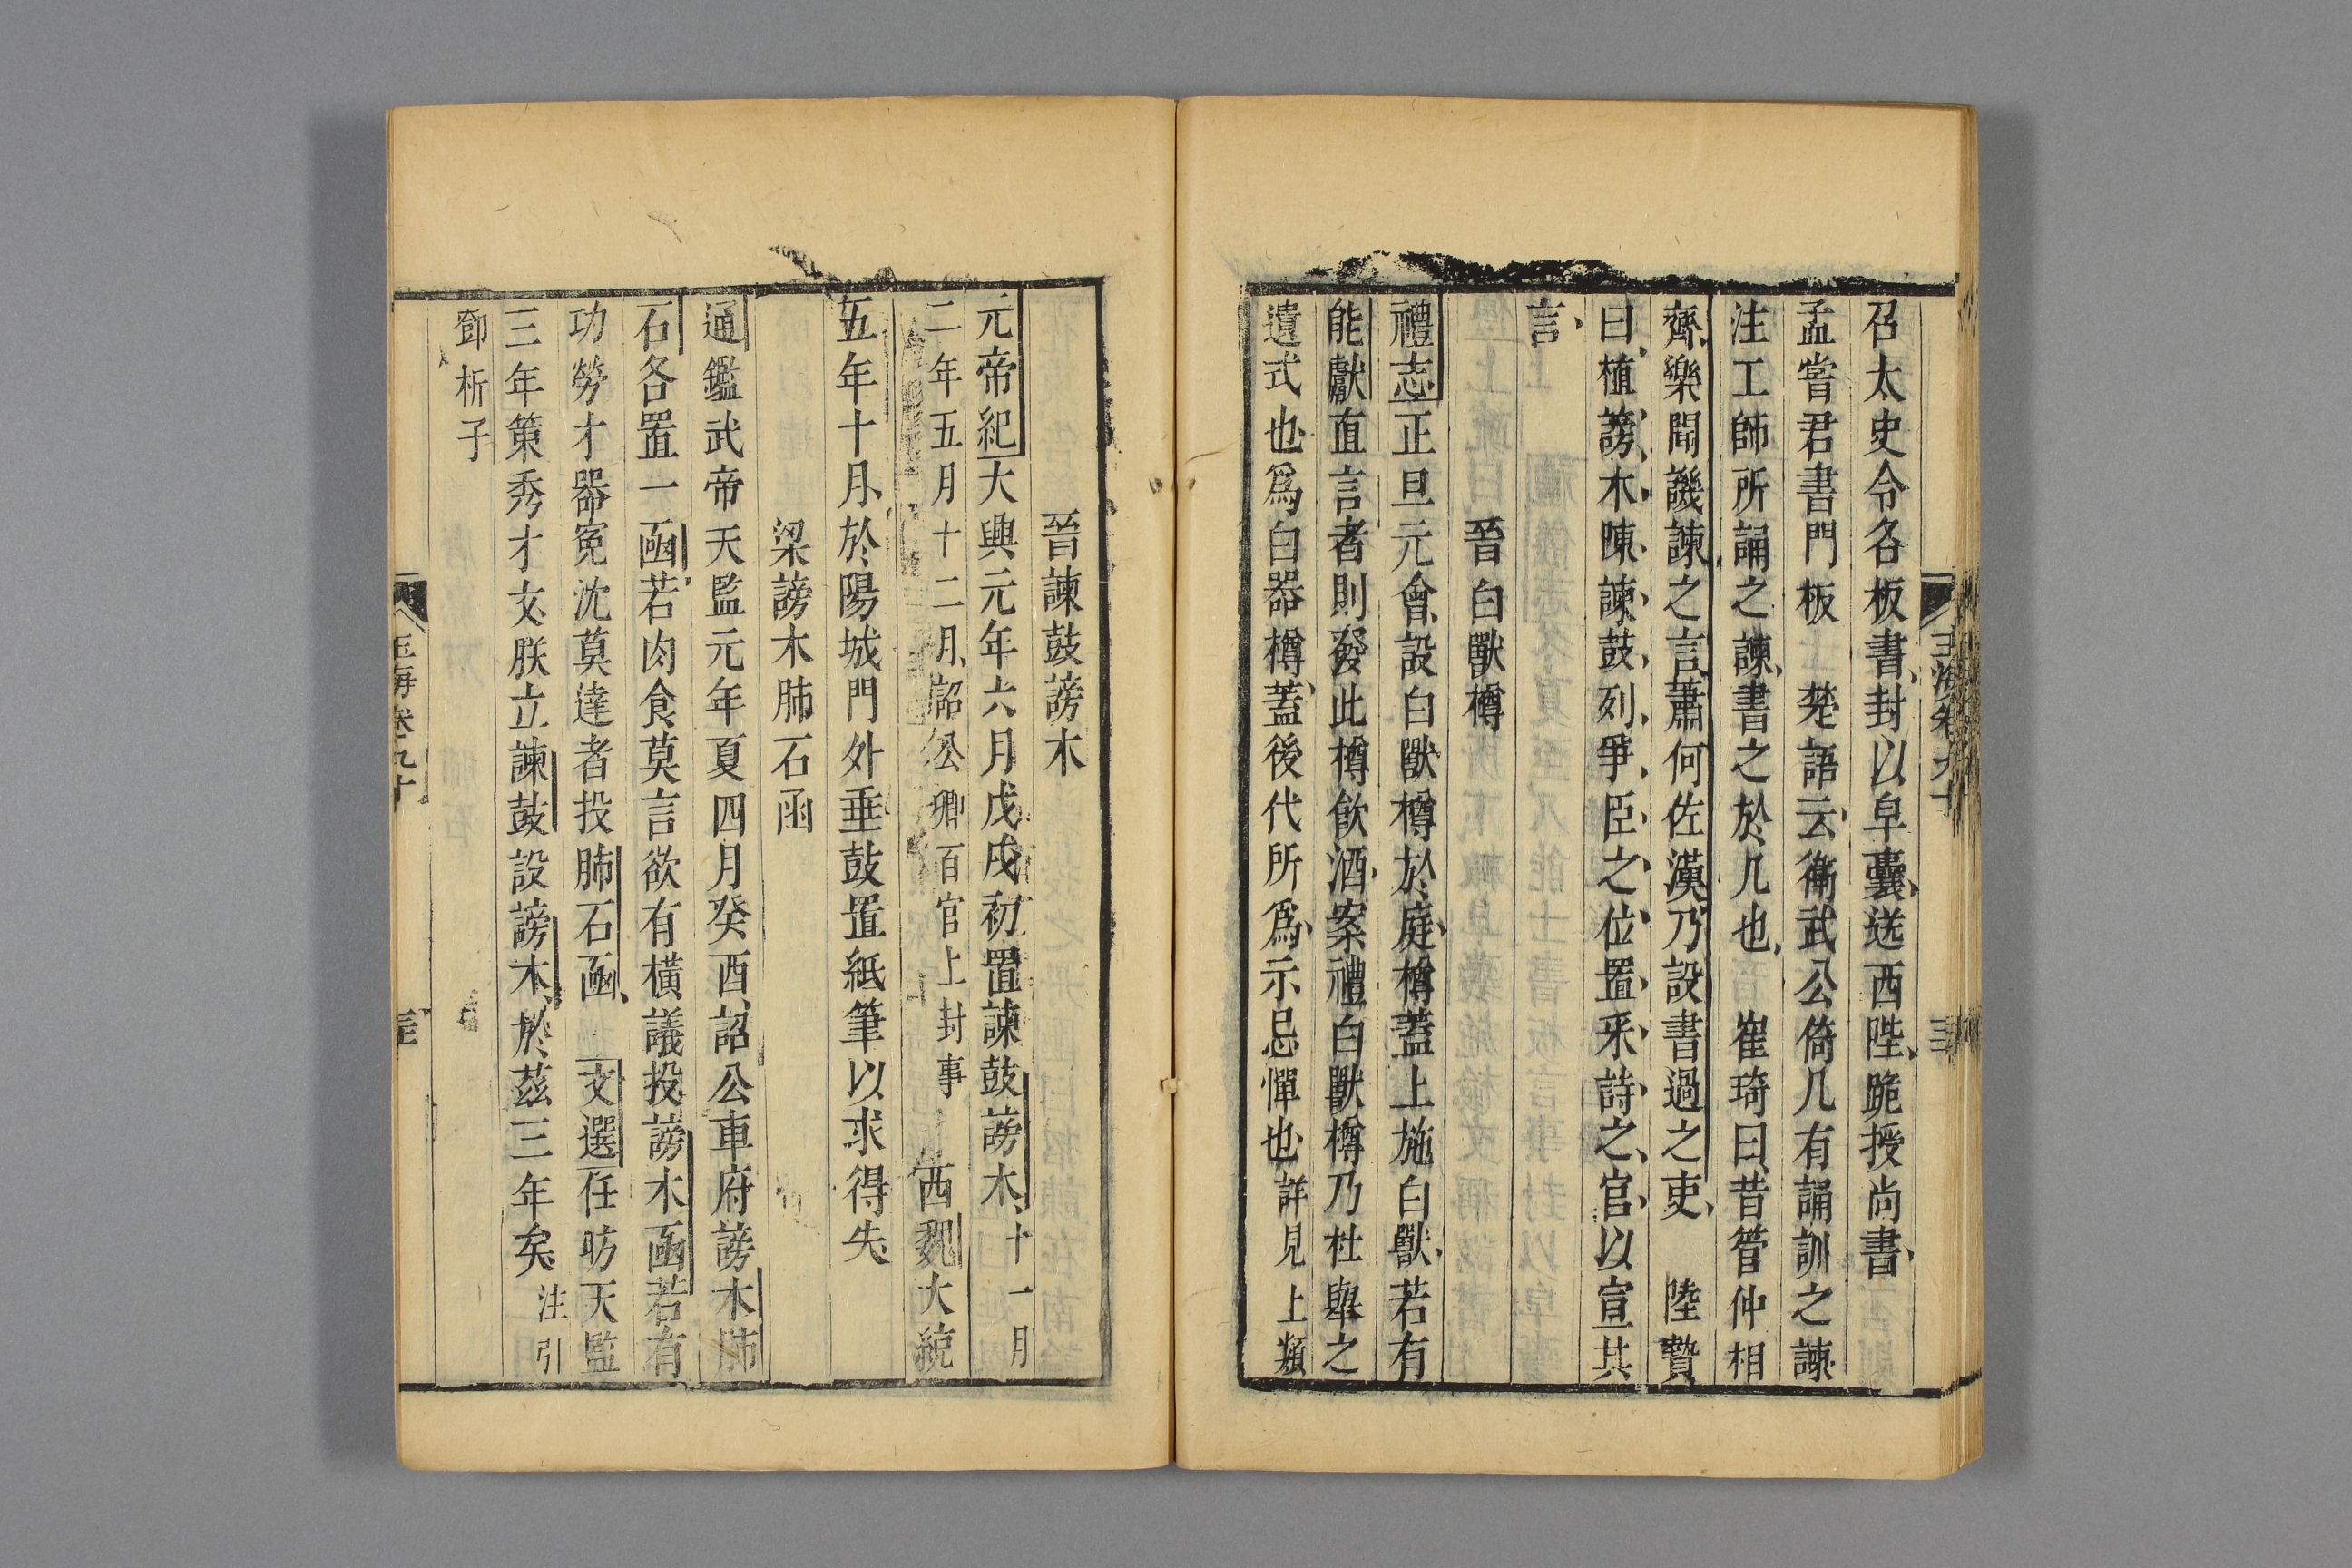 召太史令各板書封以皁囊送西陛跪授尚書
孟嘗君書門板　楚語云衞武公倚几有誦訓之諫
注工師所誦之諫書之於几也　崔琦曰昔管仲相
齊樂聞譏諫之言蕭何佐漢乃設書過之吏　陸贄
曰植謗木陳諫鼓列爭臣之位置采詩之官以宣其
言
晉白獸樽
禮志正旦元會設白獸樽於庭樽蓋上施白獸若有
能獻直言者則發此樽飲酒案禮白獸樽乃杜舉之
遺式也爲白器樽蓋後代所爲示忌憚也詳見上類
晉諫鼓謗木
元帝紀大興元年六月戊戌初置諫鼓謗木十一月
二年五月十二月詔公卿百官上封事　西魏大統
五年十月於陽城門外垂鼓置紙筆以求得失
梁謗木肺石函
通鑑武帝天監元年夏四月癸酉詔公車府謗木肺
石各置一函若肉食莫言欲有橫議投謗木函若有
功勞才器冤沈莫達者投肺石函　文選任昉天監
三年策秀才文朕立諫鼓設謗木於茲三年矣注引
鄧析子
玉海卷九十